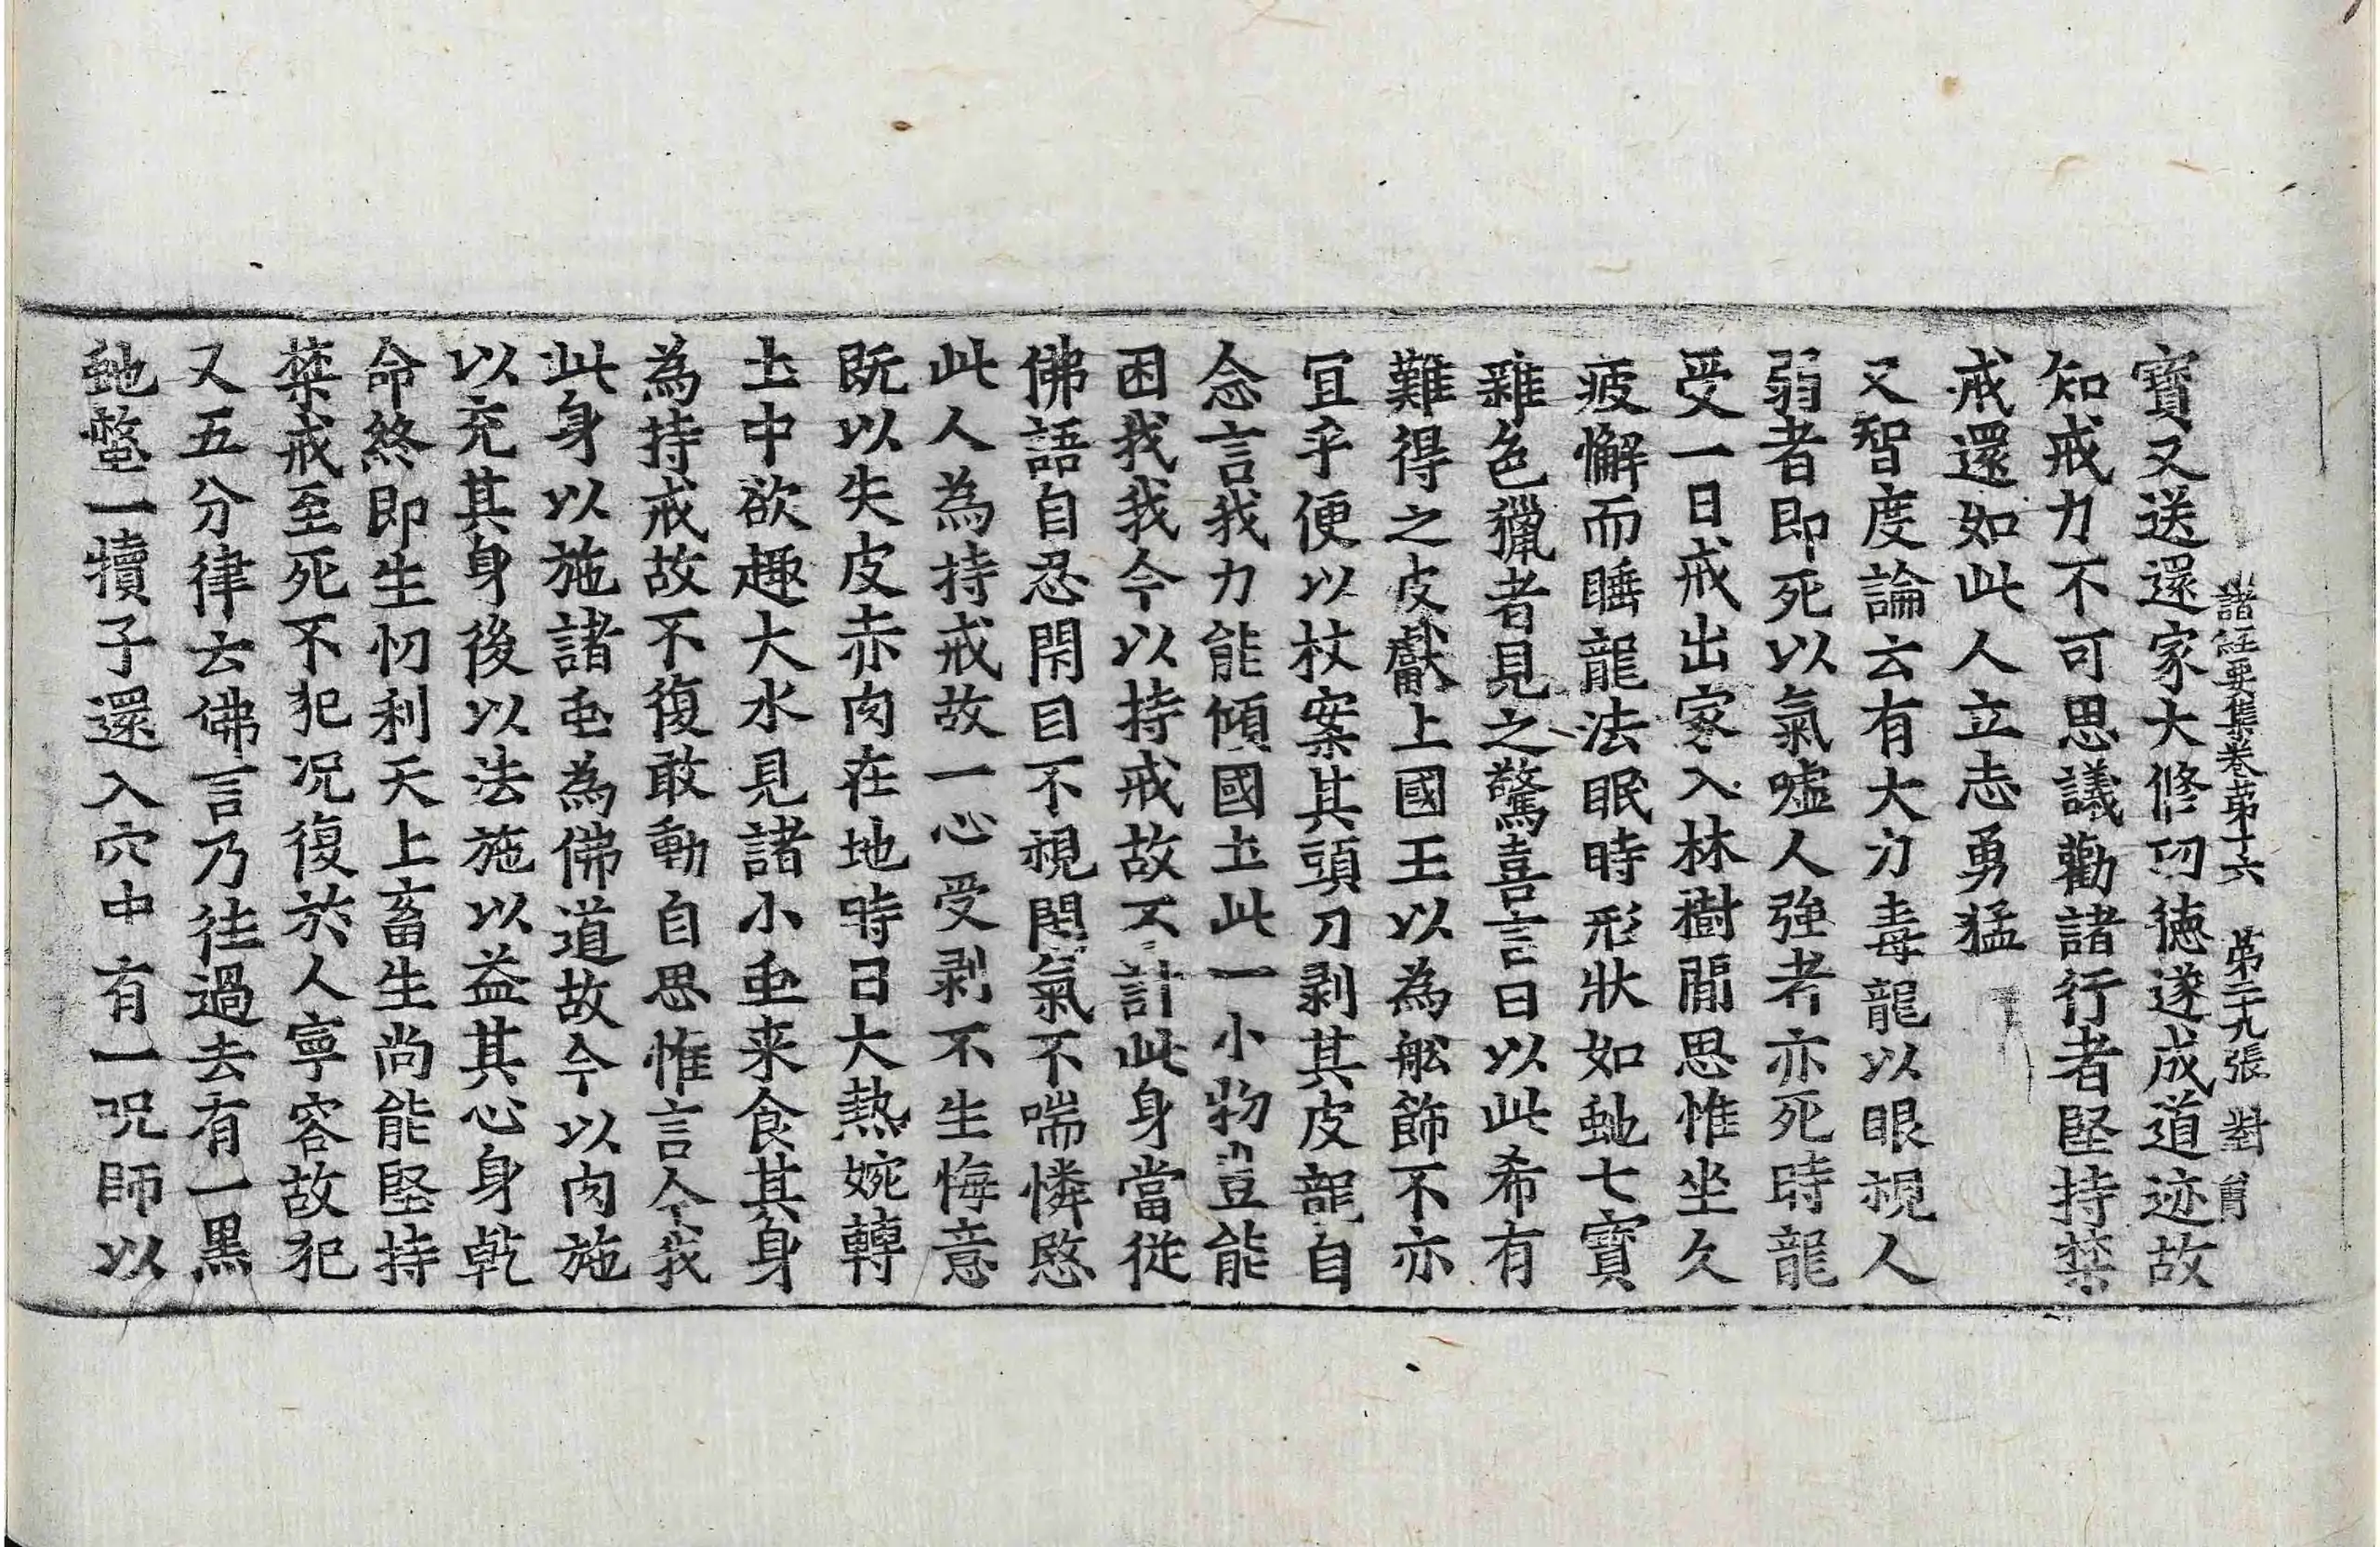 諸経要集巻苐十六　苐二十九張　對
寶又送還家大修功徳遂成道迹故
知戒力不可思議勸諸行者堅持禁
戒還如此人立志勇猛
又智度論云有大力毒龍以眼視人
弱者即死以氣嘘人強者亦死時龍
受一日戒出家入林樹閒思惟坐久
疲懈而睡龍法眠時形狀如虵七寶
雜色獵者見之驚喜言曰以此希有
難得之皮獻上國王以為舩飾不亦
冝乎便以杖案其頭刀剥其皮龍自
念言我力能傾國圡此一小物豈能
困我我今以持戒故不計此身當從
佛語自忍閇目不視閇氣不喘憐愍
此人為持戒故一心受剥不生悔意
既以失皮赤肉在地時日大熱婉轉
圡中欲趣大水見諸小虫来食其身
為持戒故不復敢動自思惟言今我
此身以施諸虫為佛道故今以肉施
以充其身後以法施以益其心身乾
命終即生忉利天上畜生尚能堅持
禁戒至死不犯况復於人寧容故犯
又五分律云佛言乃徃過去有一黒
虵螫一犢子還入穴中有一呪師以